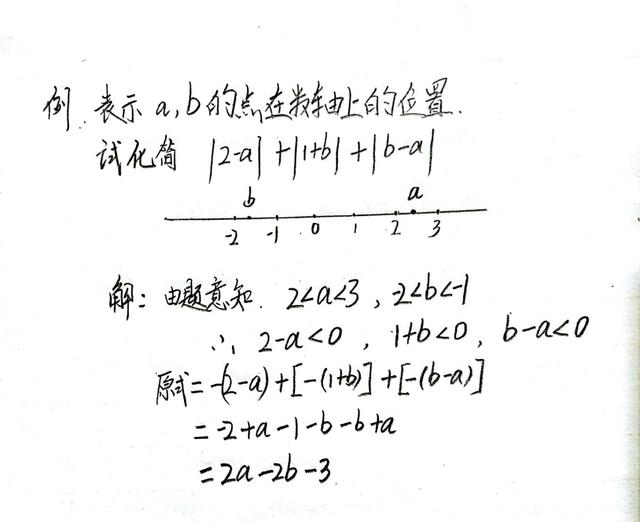 例. 表示 a,b 的点在数轴上的位置.
试化简 |2-a|+|1+b|+|b-a|
b a
-2 -1 0 1 2 3
解: 由题意知. 2<a<3, -2<b<-1
∴ 2-a<0, 1+b<0, b-a<0
原式=-(2-a)+[-(1+b)]+[-(b-a)]
=-2+a-1-b-b+a
=2a-2b-3